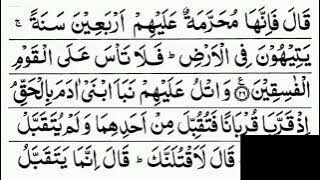 قَالَ فَاِنَّهَا مُحَرَّمَةٌ عَلَيْهِمْ اَرْبَعِيْنَ سَنَةً ۚ
يَتِيْهُوْنَ فِى الْاَرْضِ ؕ فَلَا تَاْسَ عَلَى الْقَوْمِ
الْفٰسِقِيْنَ ﴿۲۶﴾ وَاتْلُ عَلَيْهِمْ نَبَاَ ابْنَىْ اٰدَمَ بِالْحَقِّ ۘ
اِذْ قَرَّبَا قُرْبَانًا فَتُقُبِّلَ مِنْ اَحَدِهِمَا وَلَمْ يُتَقَبَّلْ
قَالَ لَاَقْتُلَنَّكَ ؕ قَالَ اِنَّمَا يَتَقَبَّلُ